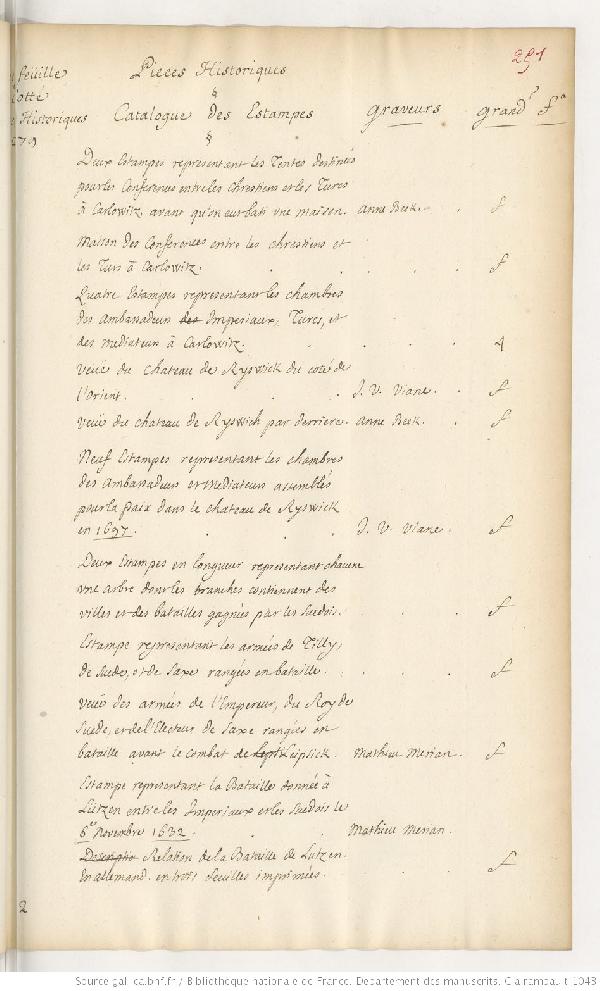 251
feüille Pieces Historiques
cotté §
Historiques Catalogue des Estampes Graveurs Grand.r f.o
279 §
Deux Estampes representant les Tentes destinées
pour les Conferences entre les Chrestiens et les Turcs
à Carlowitz. avant qu'on eut bati vne maison. Anne Beek. f
Maison des Conferences entre les chrestiens et
les Turs à Carlowitz. f
Quatre Estampes representant les chambres
des Ambassadeurs des Imperiaux, Turcs, et
des mediateurs à Carlowitz. 4
veüe du chateau de Ryswick du coté de
l'orient. J. V. Viane. f
veüe du chateau de Ryswich par derriere. Anne Beek. f
Neuf Estampes representant les chambres
des Ambassadeurs et mediateurs assemblés
pour la paix dans le chateau de Ryswick
en 1697. J. V. Viane. f
Deux Estampes en longueur representant chacune
vne arbre dont les branches contiennent des
villes et des batailles gagnées par les suedois. f
Estampe representant les armées de Tilly,
de suede, et de saxe rangées en bataille. f
veüe des armées de l'Empereur, du Roy de
suede, et de l'Electeur de saxe rangées en
bataille avant le combat de Leipsick. Mathieu Merian. f
Estampe representant la Bataille donnée à
Lutzen entre les Imperiaux et les suedois le
6.e Novembre 1632. Mathieu Merian.
Descriptio Relation de la Bataille de Lutzen
En allemand. en trois feuilles imprimées. f
2
Source gallica.bnf.fr / Bibliothèque nationale de France. Département des manuscrits. Clairambault 1048